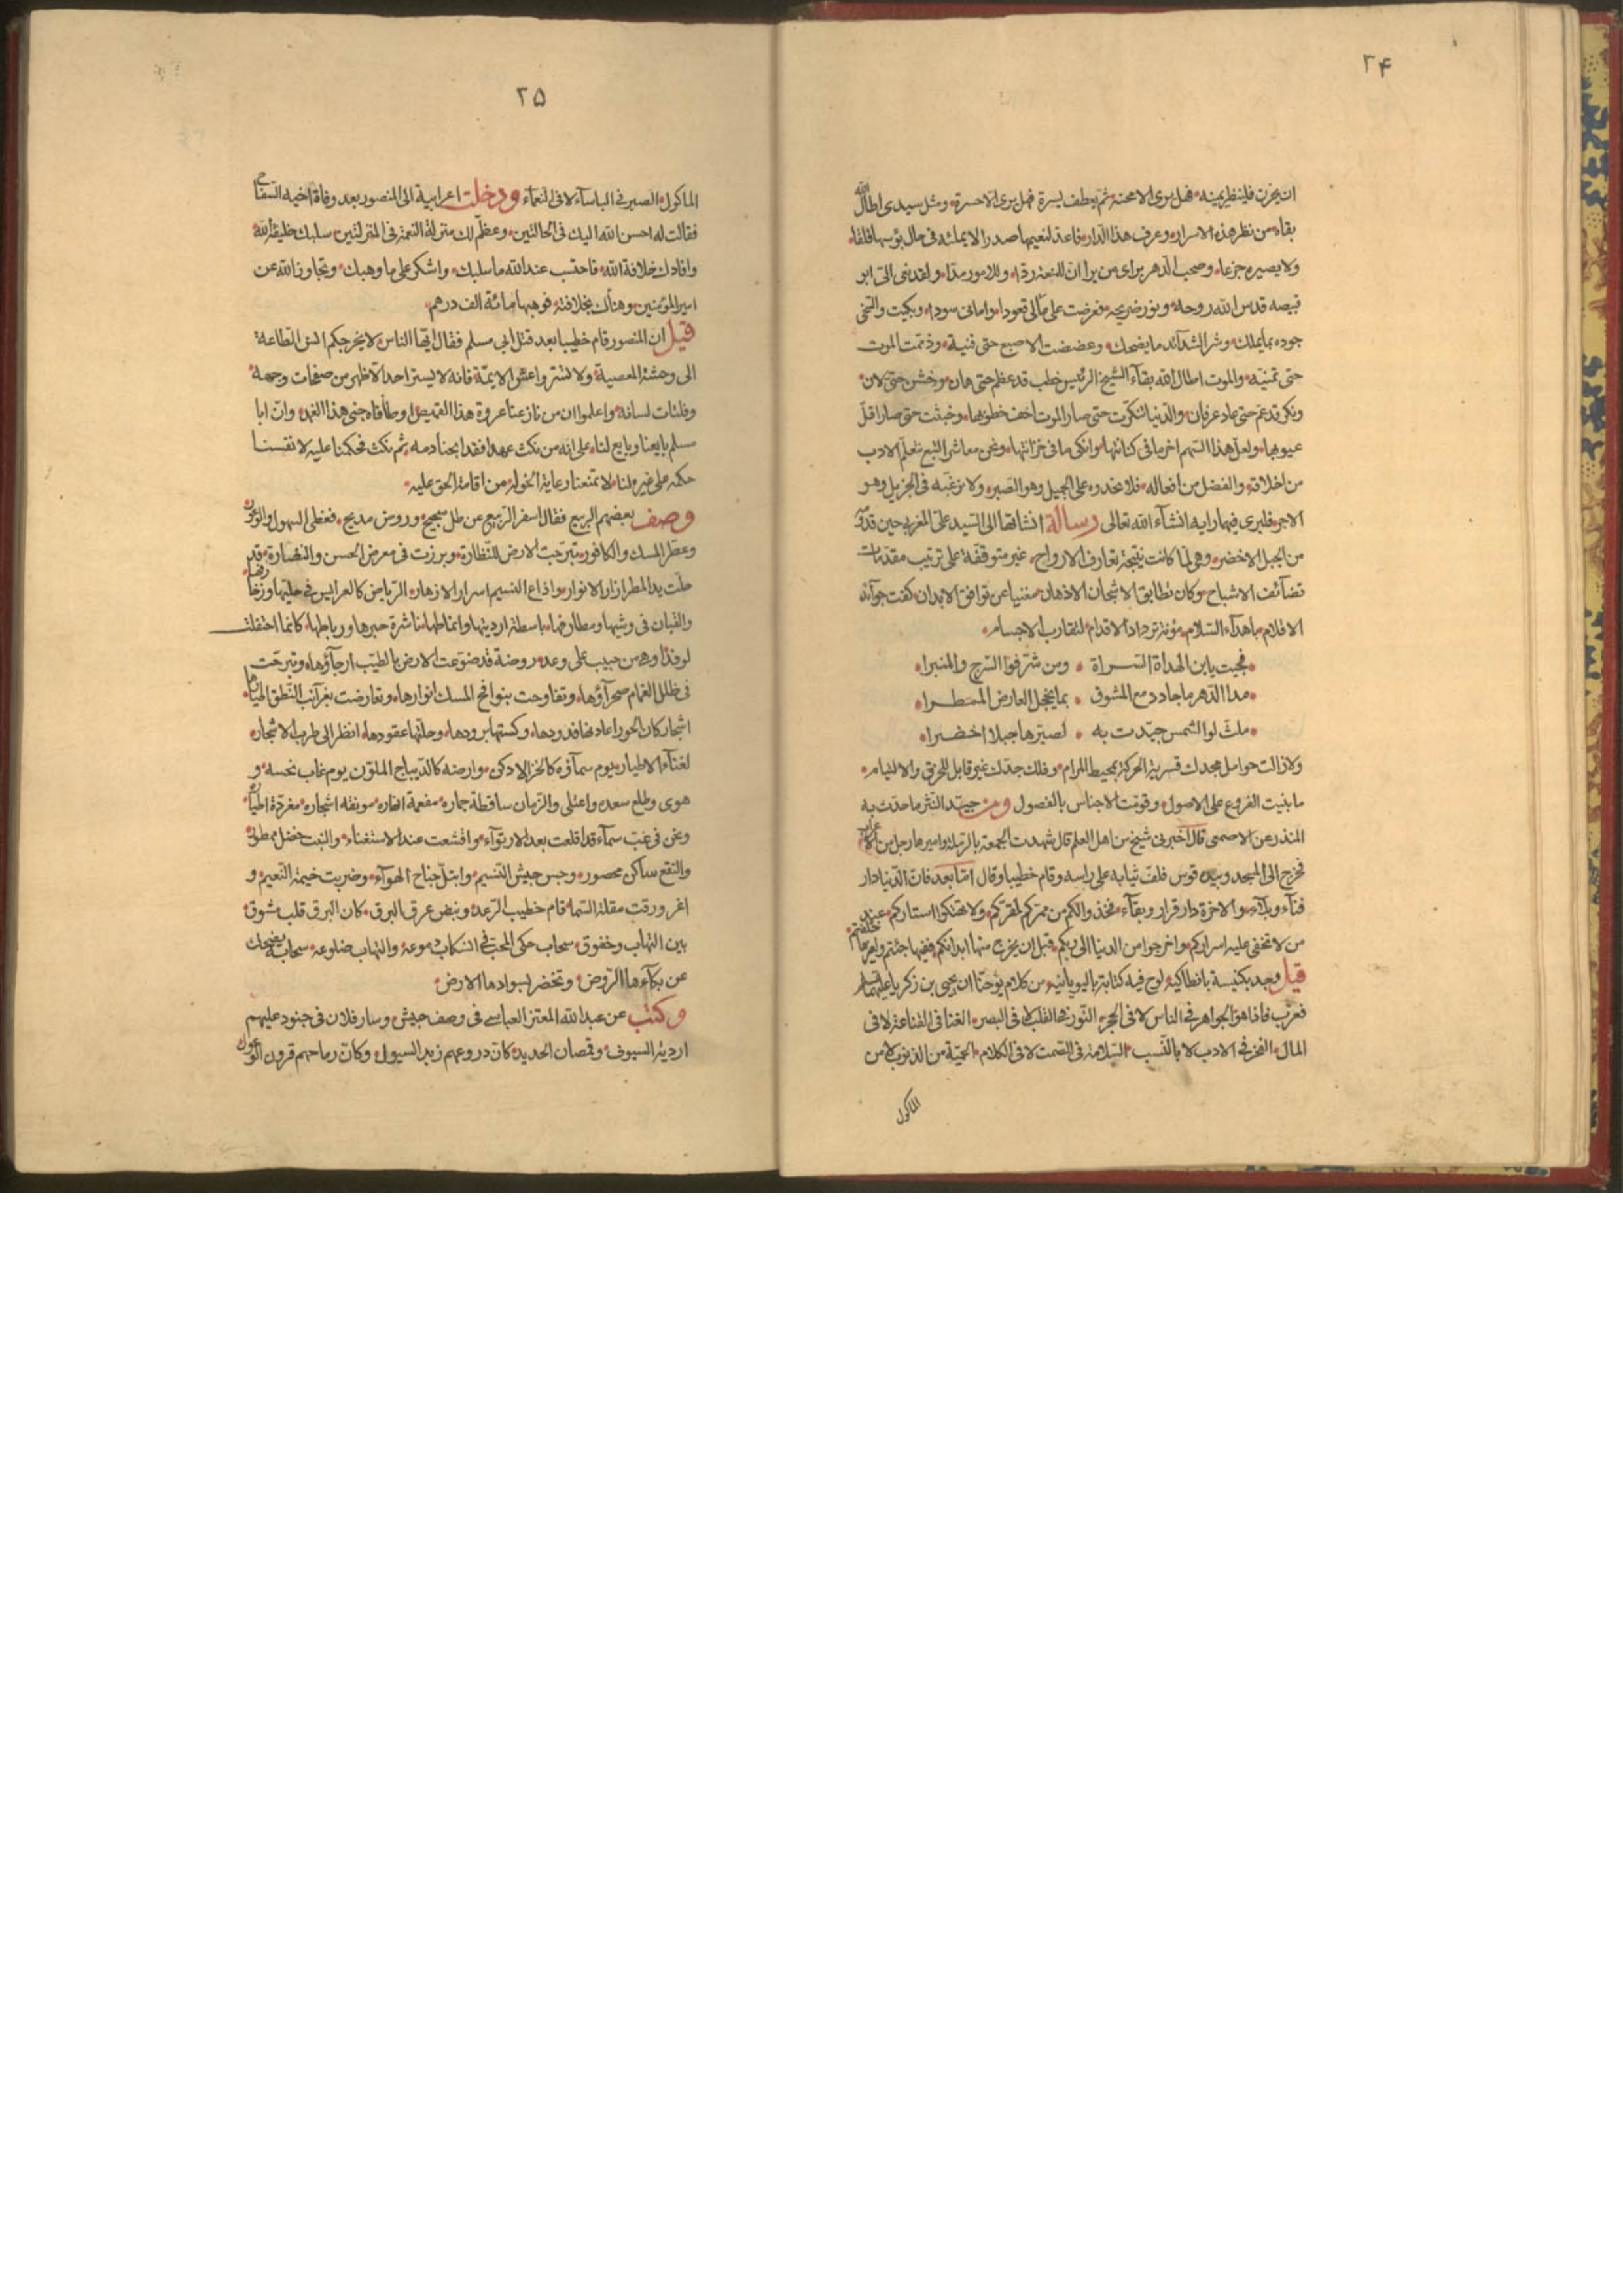 ۲۴
ان يحزن فلينظر يمينه فهل يرى الا محنة ثم يعطف يسرة فهل يرى الا حسرة ومثل سيدى اطال الله
بقاءه من نظر هذه الاسرار وعرف هذا الدار فاعد لنعيمها صدرا لا يملئه فى حال بؤسها قلقا
ولا يصيره جزعا وصحب الدهر براى من يرا ان للنعمة ردا وللامور مدا ولقد نعى الى ابو
قبيصه قدس الله روحه ونور ضريحه فعرضت على مآلى قعودا وامانى سودا وبكيت والسخى
جوده بما يملك وشر الشدآئد ما يضحك وعضضت الاصبع حتى فنية وذممت الموت
حتى تمنيته والموت اطال الله بقآء الشيخ الرئيس خطب قد عظم حتى هان وخشن حتى لان
ونكر قد عم حتى عاد عرفان والدنيا تنكرت حتى صار الموت اخف خطوبها وخبثت حتى صار اقل
عيوبها ولعل هذا السهم اخر ما فى كنانتها وانكى ما فى خزانتها ونحن معاشر التبع نتعلم الادب
من اخلاقه والفضل من افعاله فلا نحدوه على الجميل وهو الصبر ولا نرغبه فى الجزيل وهو
الاجر فلير فيهما رايه انشآء الله تعالى رسالة انشاتها الى السيد على المغربى حين قدومه
من الجبل الاخضر وهى لما كانت نتيجة تعارف الارواح غير متوقفة على ترتيب مقدمات
تضآئف الاشباح وكان تطابق الاشجان الاذهان مغنيا عن توافق الابدان كفت جوآئد
الاقلام باهدآء السلام مؤنة ترداد الاقدام لتقارب الاجسام
فحييت يا بن الهداة السراة ومن شرفوا السرج والمنبرا
مدا الدهر ما جاد دمع المشوق بما يخجل العارض الممطرا
ملث لو الشمس جيدت به لصيرها جبلا اخضرا
ولا زالت حوامل مجدك قسرية الحركة بمحيط المرام وفلك جدك غير قابل للخرق والالتيام
ما بنيت الفروع على الاصول وقومت الاجناس بالفصول ومن جيد النثر ما حدث به
المنذر عن الاصمعى قال اخبرنى شيخ من اهل العلم قال شهدت الجمعة بالرملة واميرها رجل من الاعراب
فخرج الى المسجد وبيده قوس فلف ثيابه على راسه وقام خطيبا وقال اما بعد فان الدنيا دار
فنآء وبلآء والاخرة دار قرار وبقآء فخذوا لكم من ممركم لمقركم ولا تهتكوا استاركم عند
من لا تخفى عليه اسراركم واخرجوا من الدنيا الى ربكم قبل ان يخرج منها ابدانكم ففيها جئتم ولغيرها خلقتم
قيل وجد بكنيسة بانطاكية لوح فيه كتابة باليونانيه من كلام يوحنا ان يحيى بن زكريا عليهما السلام
فعرب فاذا هو الجواهر فى الناس لا فى الحجر النور فى القلب لا فى البصر الغنا فى القناعة لا فى
المال الفخر فى الادب لا بالنسب السلامة فى الصمت لا فى الكلام الحمية من الذنوب لا من
الماكول
۲۵
الماكول الصبر فى الباسآء لا فى النعمآء ودخلت اعرابية الى المنصور بعد وفاة اخيه السفاح
فقالت له احسن الله اليك فى الحالتين وعظم لك منزلة النعمة فى المنزلتين سلبك خليفة الله
وافادك خلافة الله فاحتسب عند الله ما سلبك واشكر على ما وهبك وتجاوز الله عن
امير المؤمنين وهنأك بخلافته فوهبها مائة الف درهم
قيل ان المنصور قام خطيبا بعد قتل ابى مسلم فقال ايها الناس لا يخرجكم انس الطاعة
الى وحشة المعصية ولا تستروا غش الايمة فانه لا يستر احد الا ظهر من صفحات وجهه
وفلتات لسانه واعلموا ان من نازعنا عروة هذا القميص اوطأناه جنى هذا الغمد وان ابا
مسلم بايعنا وبايع لنا على انه من نكث عهدا فقد ابحنا دمه ثم نكث فحكمنا عليه لانفسنا
حكمه على غيره لنا لا تمنعنا رعاية الخولة من اقامة الحق عليه
وصف بعضهم الربيع فقال اسفر الربيع عن ظل سجيج وروض مدبج فغطى السهول والوعور
وعطر المسك والكافور تبرجت الارض للنظارة وبرزت فى معرض الحسن والنضارة قد
حلت يد المطر ازار الانوار واذاع النسيم اسرار الازهار الرياض كالعرايس فى حليها وزخارفها
والقيان فى وشيها ومطارفها باسطة ارديتها وانماطها ناشرة حبرها ورياطها كانما احتفلت
لوفد او هى من حبيب على وعد روضة قد ضوعت الارض بالطيب ارجآؤها وتبرجت
فى ظلل الغمام صحرآؤها وتفاوحت بنوافح المسك انوارها وتعارضت بغرآئب النطق اطيارها
اشجار كان الحور اعارتها قدودها وكستها برودها وحلتها عقودها انظر الى طرب الاشجار
لغنآء الاطيار يوم سمآؤه كالخز الادكن وارضه كالديباج الملون يوم غاب نحسه و
هوى وطلع سعده واعتلى والزمان ساقطة جماره مفعمة انهاره مونقه اشجاره مغردة اطياره
ونحن فى غب سمآء قد اقلعت بعد الارتوآء واقشعت عند الاستغناء والنبت خضل ممطور
والنقع ساكن محصور وحبس جيش النسيم وابتل جناح الهوآء وضربت خيمة النعيم و
اغرورقت مقلة السما قام خطيب الرعد ونبض عرق البرق كان البرق قلب مشوق
بين التهاب وخفوق سحاب حكى المحب فى انسكاب دموعه والتهاب ضلوعه سحاب يضحك
عن بكآءها الروض وتخضر لسوادها الارض
وكتب عن عبد الله المعتز العباسى فى وصف جيش وسار فلان فى جنود عليهم
اردية السيوف وقمصان الحديد كان دروعهم زبد السيول وكان رماحهم قرون الوعول